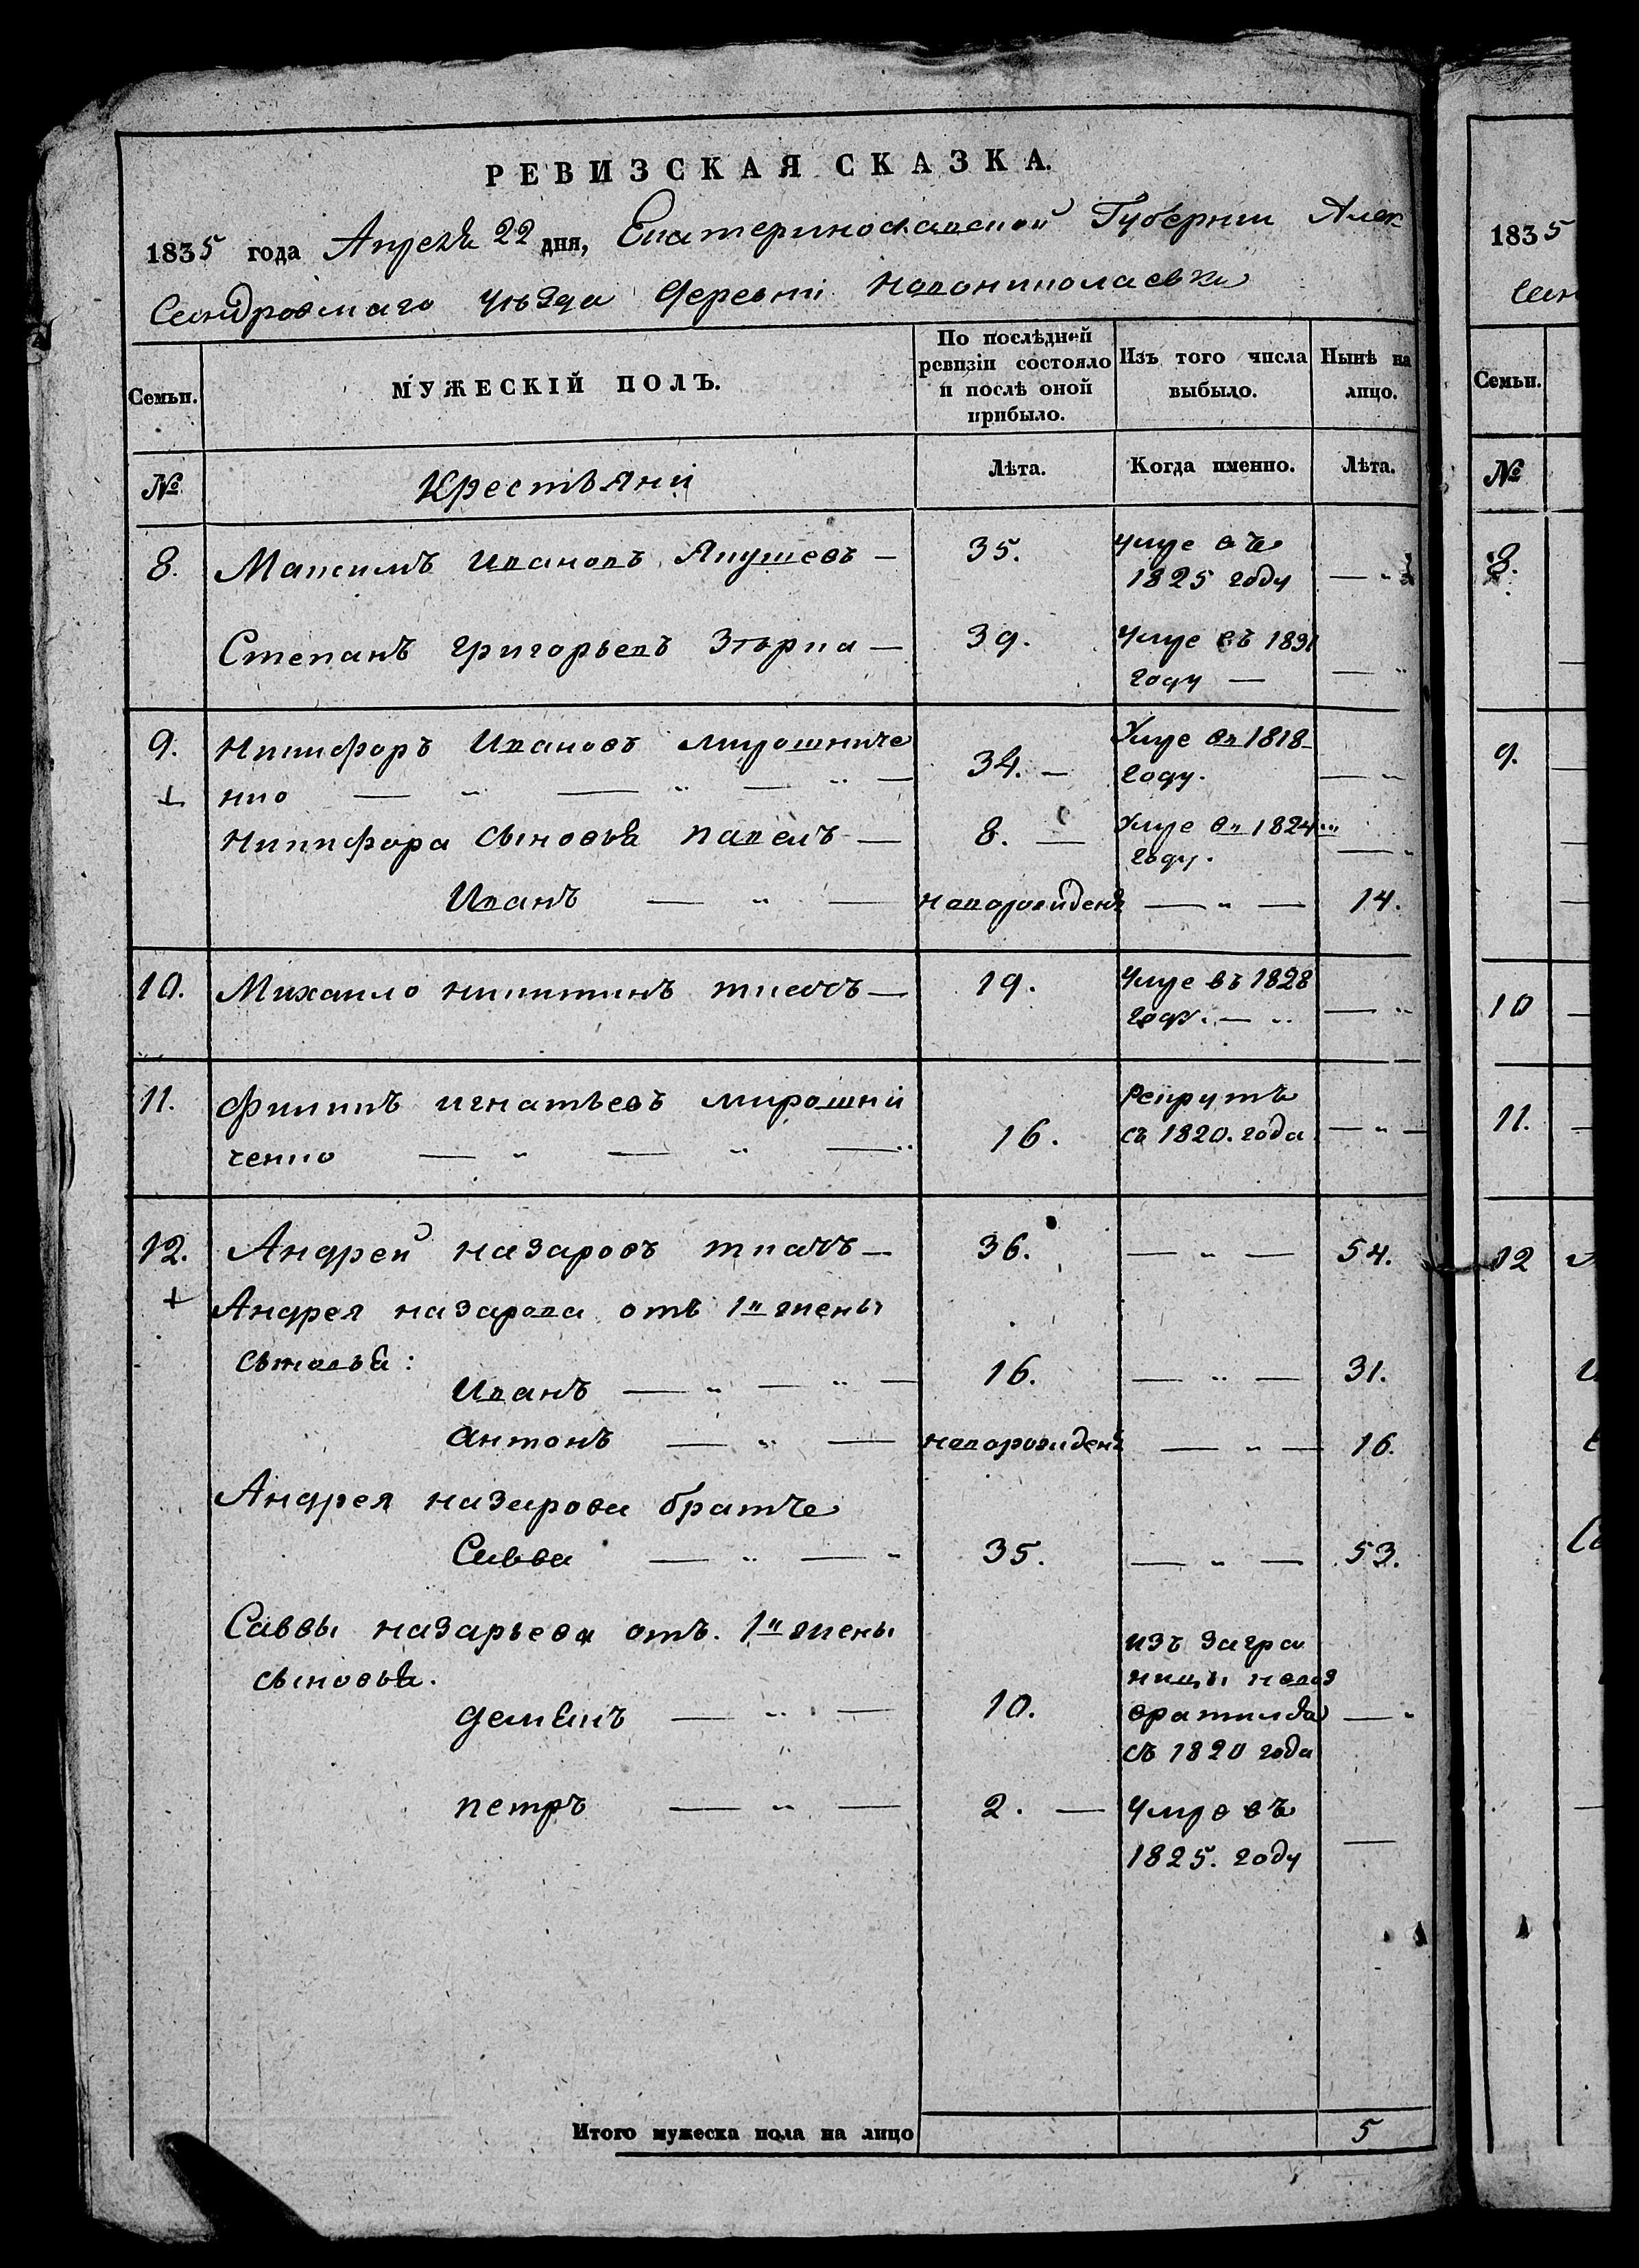 РЕВИЗСКАЯ СКАЗКА.
1835 года Апреля 22 дня, Екатеринославской Губернии Алек
сандровскаго уѣзда деревни новониколаевки
Семьи.
МУЖЕСКІЙ ПОЛЪ.
По послѣдней ревизіи состояло и послѣ оной прибыло.
Изъ того числа выбыло.
Нынѣ на лицо.
№
Крестьяни
Лѣта.
Когда именно.
Лѣта.
8. Максимъ Ивановъ Якушевъ — 35. умре въ
1825 году — „
Степанъ григорьевъ — 39. умре въ 1831
году — — „
9. никифоръ Ивановъ мирошниче
нко — „ — „ — „ — 34. — Умре въ 1818
году. — „
никифора сыновья павелъ — 8. — Умре въ 1824
году. — „
Иванъ — „ — новорожденъ — „ — 14.
10. Михаило никитинъ ткачъ — 19. умре въ 1828
году. — „ — „
11. филипъ игнатьевъ мирошни
ченко — „ — „ — „ 16. рекрутъ
съ 1820. года — „ —
12. Андрей назаровъ ткачъ — 36. — „ — 54.
Андрея назарова отъ 1й жены
сыновья:
Иванъ — „ — „ — 16. — „ — 31.
антонъ — „ — новорожденъ — „ — 16.
Андрея назарова братъ
Савва — „ — „ 35. — „ — 53.
Саввы назарьева отъ. 1й жены
сыновья.
демьянъ — „ — 10. изъ загра
ницы невоз
вратился
съ 1820 года — „
петръ — „ — 2. — умре въ
1825. году —
Итого мужеска пола на лицо 5
1835
сан
Семьи.
№
8.
9.
10
11.
12